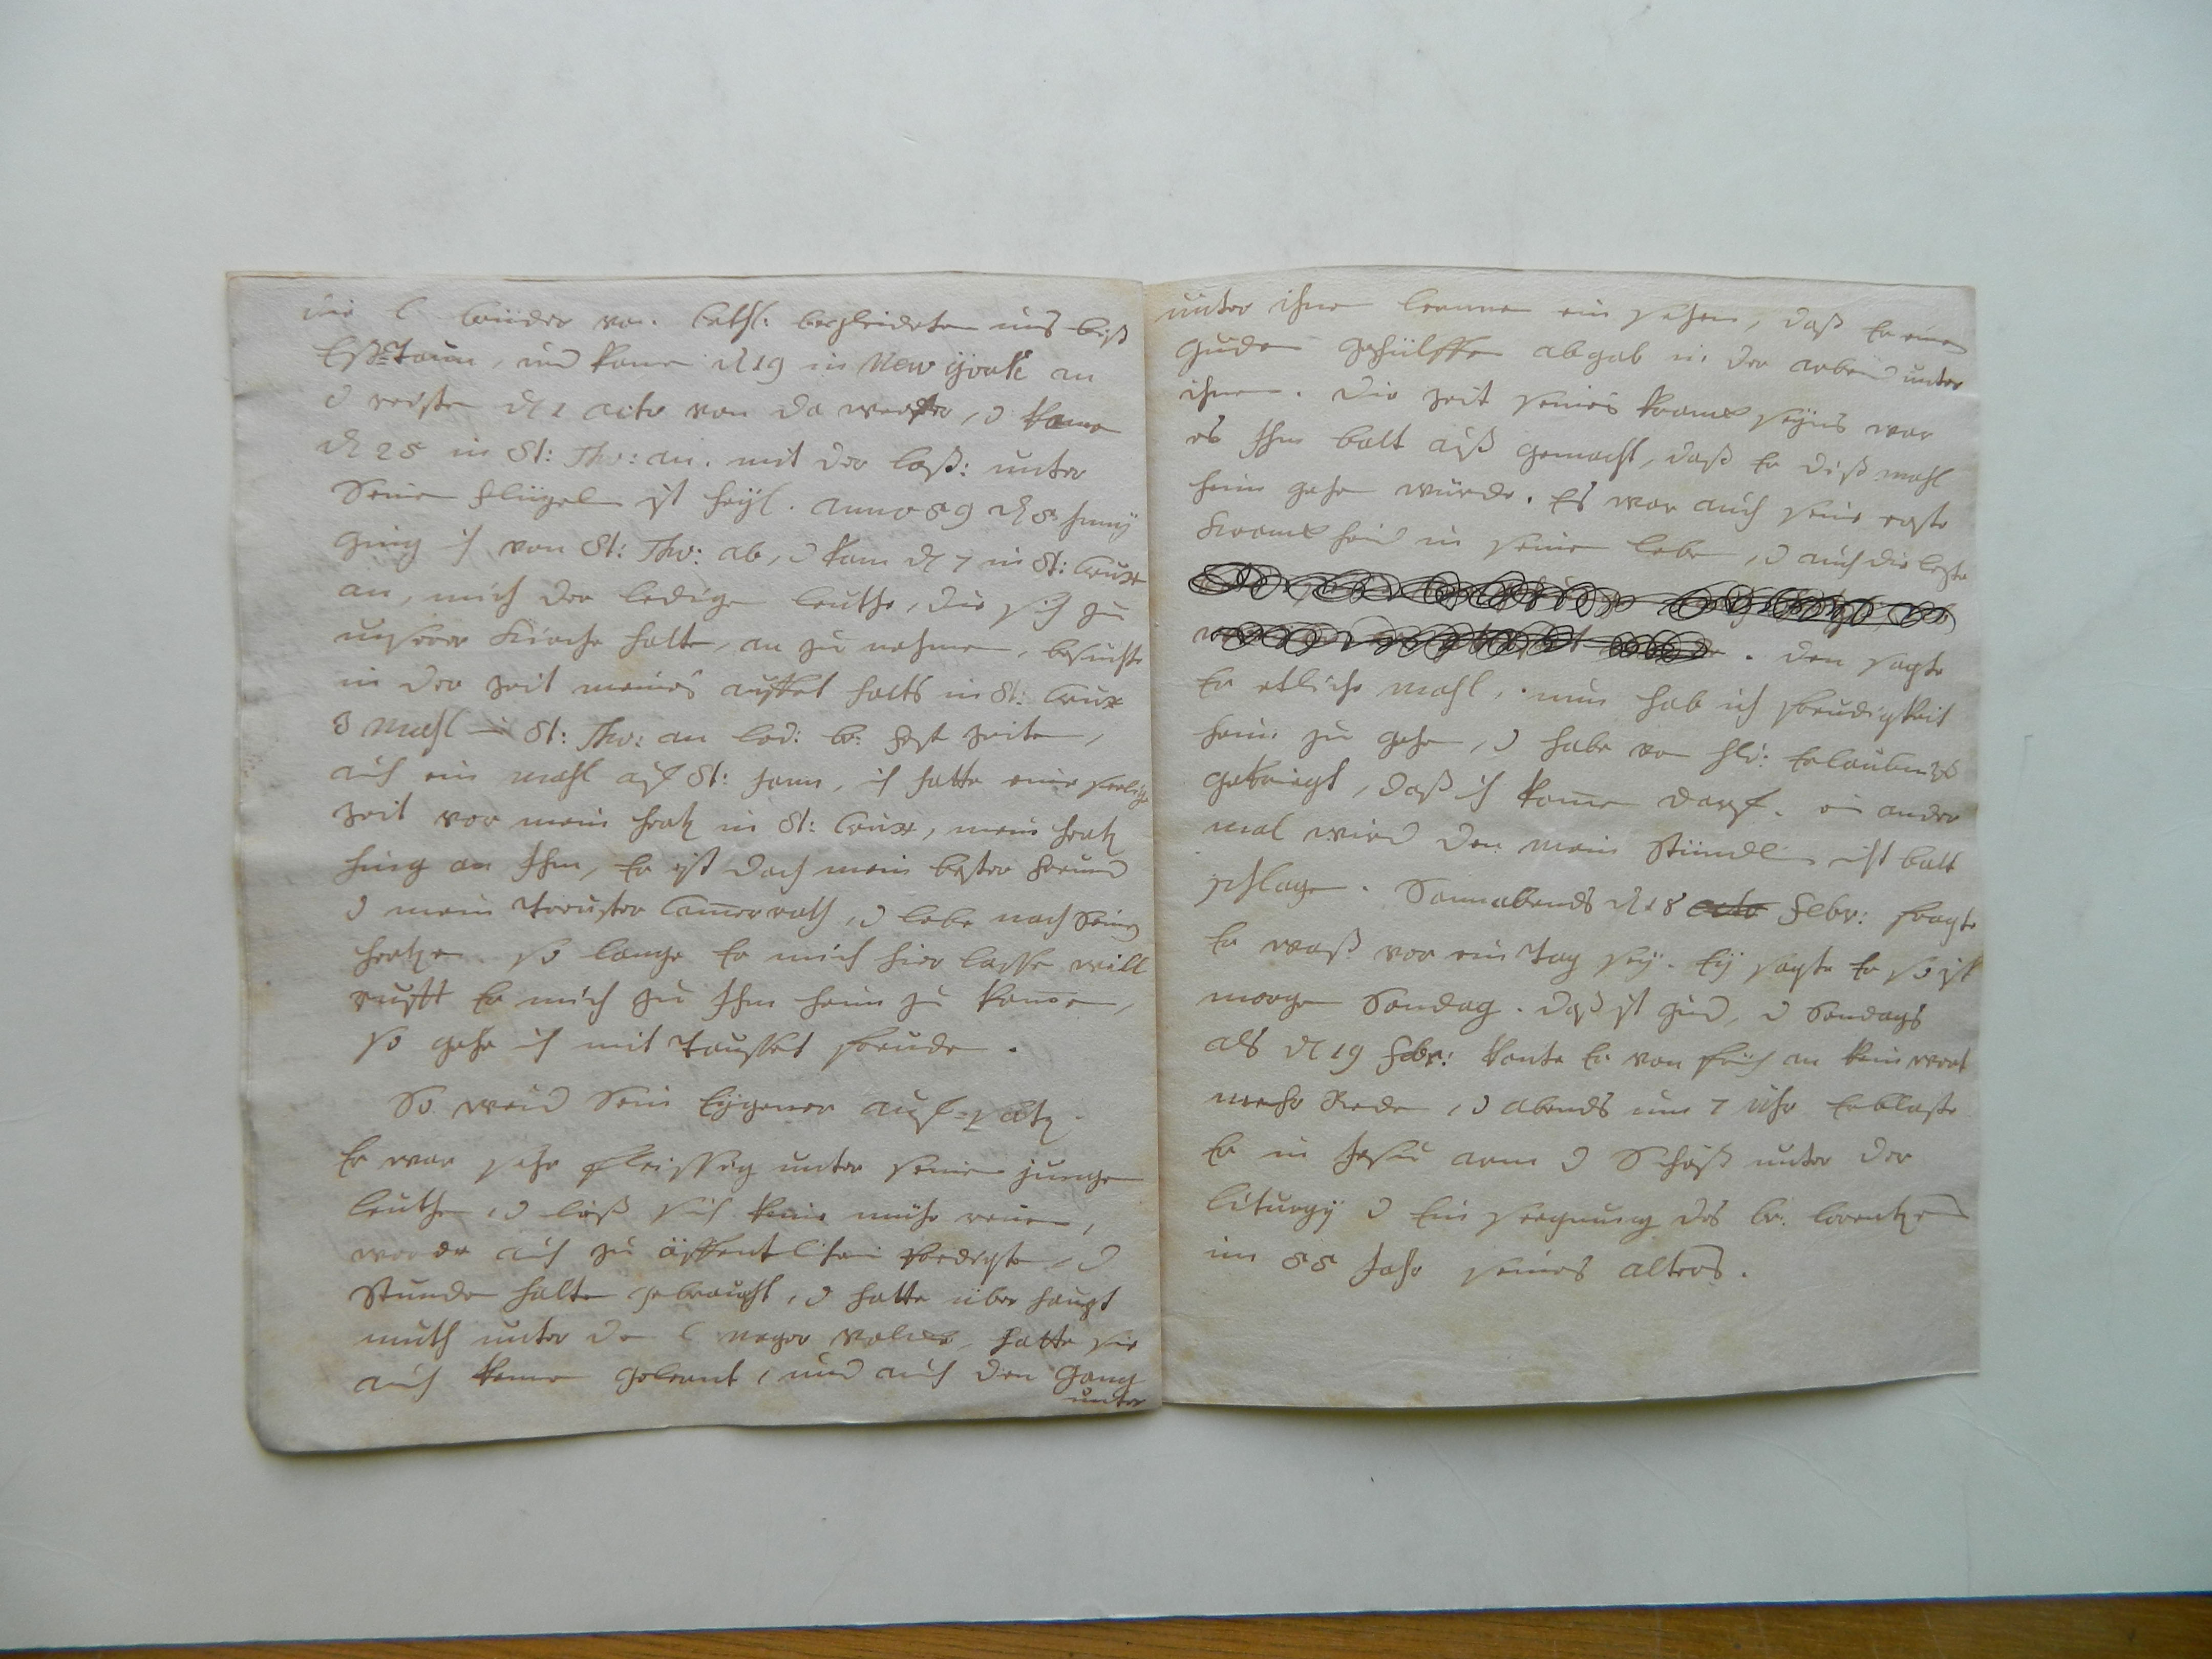 die l brüder von bethl: begleideten uns biß
Eß=Taun, und kamen d 19 in New york an
d reisten d 1 octo von da weiter, d kamen
d 25 in St: Tho: an. mit der loß: unter
Seinen flügeln ist heyl. anno 59 d 5 Juny
ging ich von St: Tho: ab, d kam d 7 in St: Crux
an, mich der ledigen leuthe, die sich zu
unserer Kirche halten, an zu nehmen, besuchte
in der zeit meines auffet halts in St: Crux
3 mahl in St: Tho: an led: br: fest zeiten,
auch ein mahl auf St: Jann, ich hatte eine seelige
zeit vor mein hertz in St: Crux, mein hertz
hing an Ihm, Er ist doch mein bester freund
d mein treuster Camerrath, d lebe nach Seinem
hertzen. so lange Er mich hier lassen will
rufft Er mich zu Ihm heim zu kommen,
so gehe ich mit tausset freuden.
So weid Sein Eygener auf=satz.
Er war sehr fleissig unter seinen jungen
leuthen, d ließ sich keine mühe reuen,
worde auch zu öffentlichen predigten, d
Stunden halten gebraucht, d hatte über haupt
muth unter den l neger volcke, hatte sie
auch kennen gelernt, und auch den Gang
unter
unter ihnen lernen ein sehen, daß Er einen
Guden gehülffen abgab in der arbeid unter
ihnen. Die zeit seines kranck seyns war
es Ihm balt auß gemacht, daß Er diß mahl
heim gehen würde. Es war auch seine erste
Kranck heid in seinem leben, d auch die lezte
. den sagte
Er etliche mahl, nun hab ich freudigkeit
heim zu gehen, d habe vom hld: Erlaubniß
gekriegt, daß ich kommen darf. ein ander
mal wird den mein Stündlein nicht balt
schlagen. Sonnabends d 18 octo Febr: fragte
Er waß vor ein Tag sey. Ey sagte Er so ist
morgen Sondag. daß ist gud, d Sondags
als d 19 Febr: konte Er von früh an kein wort
mehr Reden, d abends um 7 Uhr Erblaste
Er in Jesu arm d Schoß unter der
liturgy d Ein seegnung des br. lorentzen
im 55 Jahr seines alters.